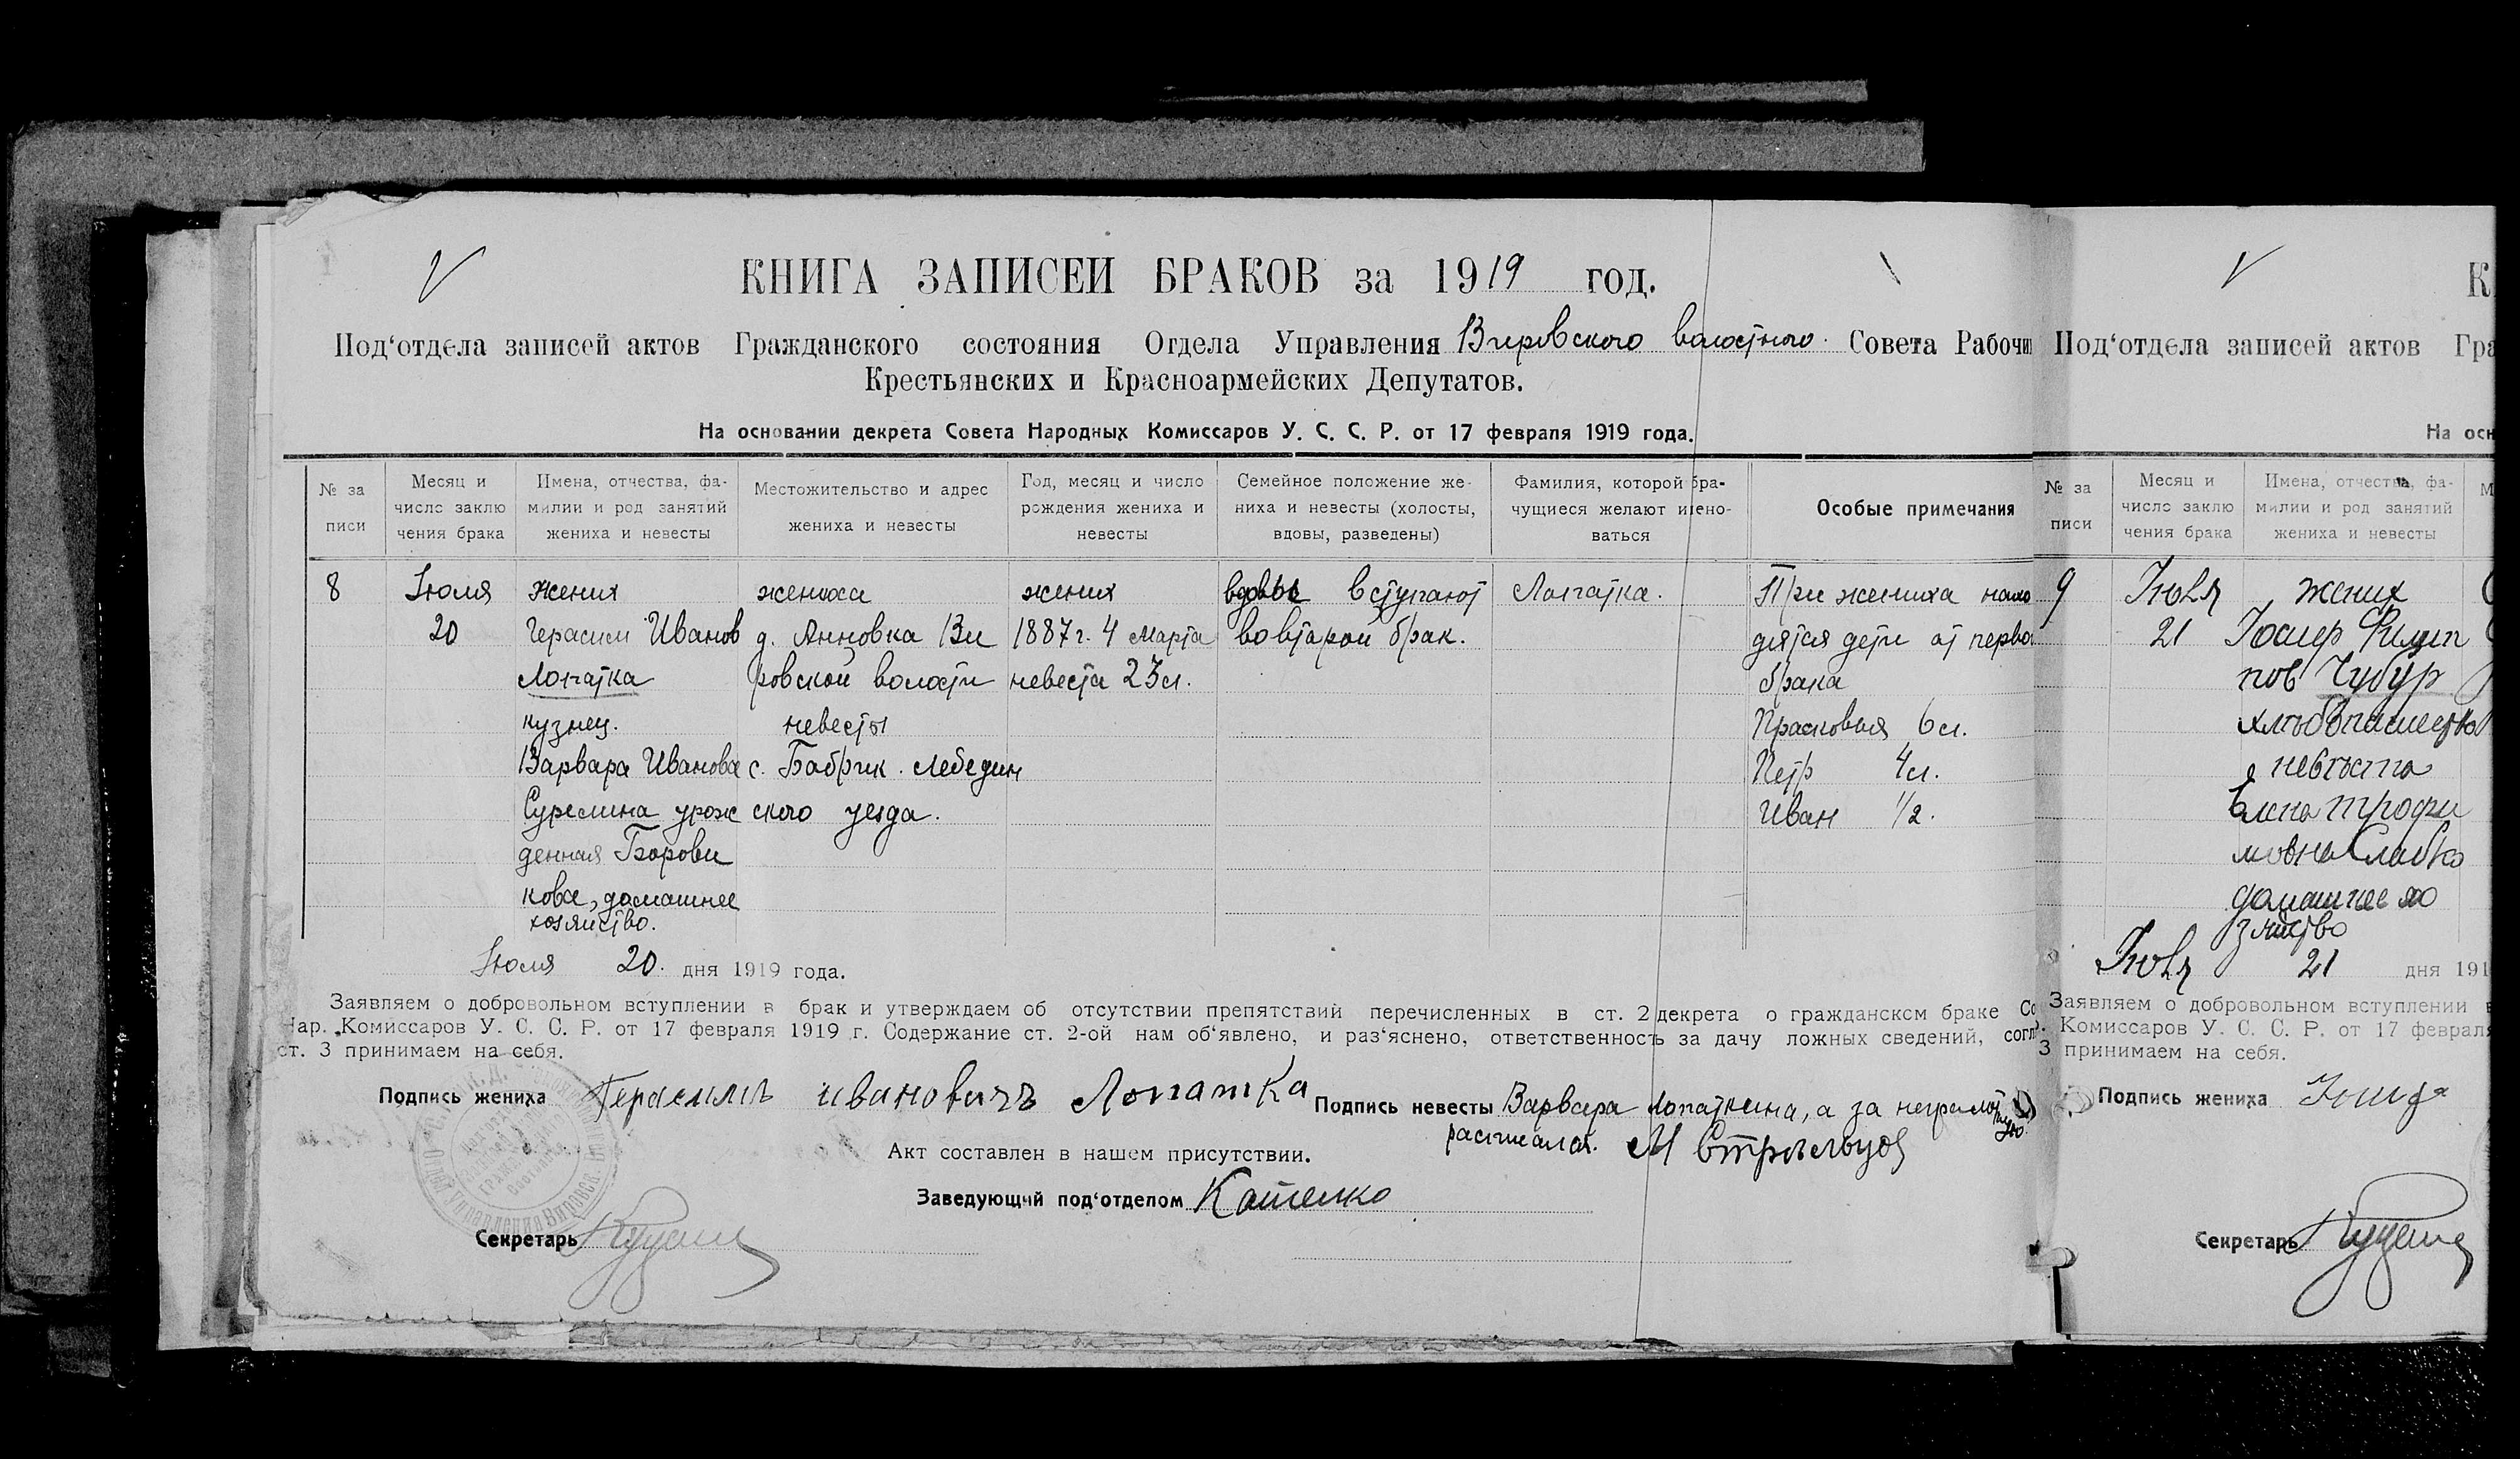 КНИГА ЗАПИСЕИ БРАКОВ за 1919 год.
Под‘отдела записей актов Гражданского состояния Отдела Управления Вировского волостного. Совета Рабочи
Крестьянских и Красноармейских Депутатов.
На основании декрета Совета Народных Комиссаров У. С. С. Р. от 17 февраля 1919 года.
№ за писи
Месяц и число заклю чения брака
Имена, отчества, фа- милии и род занятий жениха и невесты
Местожительство и адрес жениха и невесты
Год, месяц и число рождения жениха и невесты
Семейное положение же- ниха и невесты (холосты, вдовы, разведены)
Фамилия, которой бра- чущиеся желают имено- ваться
Особые примечания
8 Июля жених жениха жених вдовы вступают Лопатка. При жениха нахо
20 Герасим Иванов д. Анновка Ви 1887 г. 4 Марта во второй брак. дятся дети от перво
Лопатка ровской волости невеста 23 л. брака
кузнец. невесты Прасковья 6 л.
Варвара Иванова с. Бобрик. Лебедин Петр 4 л.
Сурелина урож ского уезда. Иван 1/2.
денная Борови
кова, домашнее
хозяйство.
Июля 20. дня 1919 года.
Заявляем о добровольном вступлении в брак и утверждаем об отсутствии препятствий перечисленных в ст. 2 декрета о гражданскcм браке Со
Нар. Комиссаров У. С. С. Р. от 17 февраля 1919 г. Содержание ст. 2-ой нам об‘явлено, и раз‘яснено, ответственность за дачу ложных сведений, согл
ст. 3 принимаем на себя.
Подпись жениха Герасимъ ивановичъ Лопатка
Подпись невесты Варвара Лопаткина, а за неграмотную
расписался. М Стрѣльцов
Акт составлен в нашем присутствии.
Заведующий под‘отделом
Секретарь
К
Под‘отдела записей актов Гра
На осн
№ за писи
Месяц и число заклю чения брака
Имена, отчества, фа- милии и род занятий жениха и невесты
М
9 Июля жених
21 Иосиф Филип
пов Чубур
хлѣбопашество
невѣста
Елена Трофи
мовна Слабко
домашнее хо
зяйство
Июля 21 дня 191
Заявляем о добровольном вступлении в
Комиссаров У. С. С. Р. от 17 февраля
3 принимаем на себя.
Подпись жениха
Секретарь